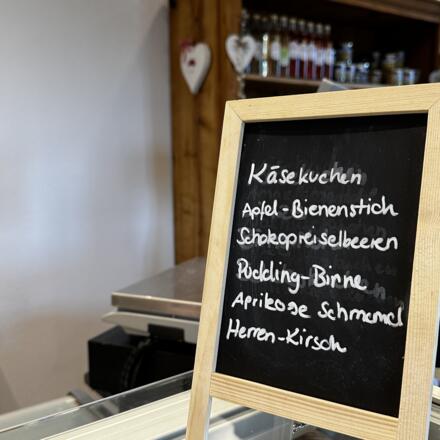 Käsekuchen
Apfel-Bienenstich
Schokopreiselbeeren
Pudding-Birne
Aprikose Schmand
Herren-Kirsch